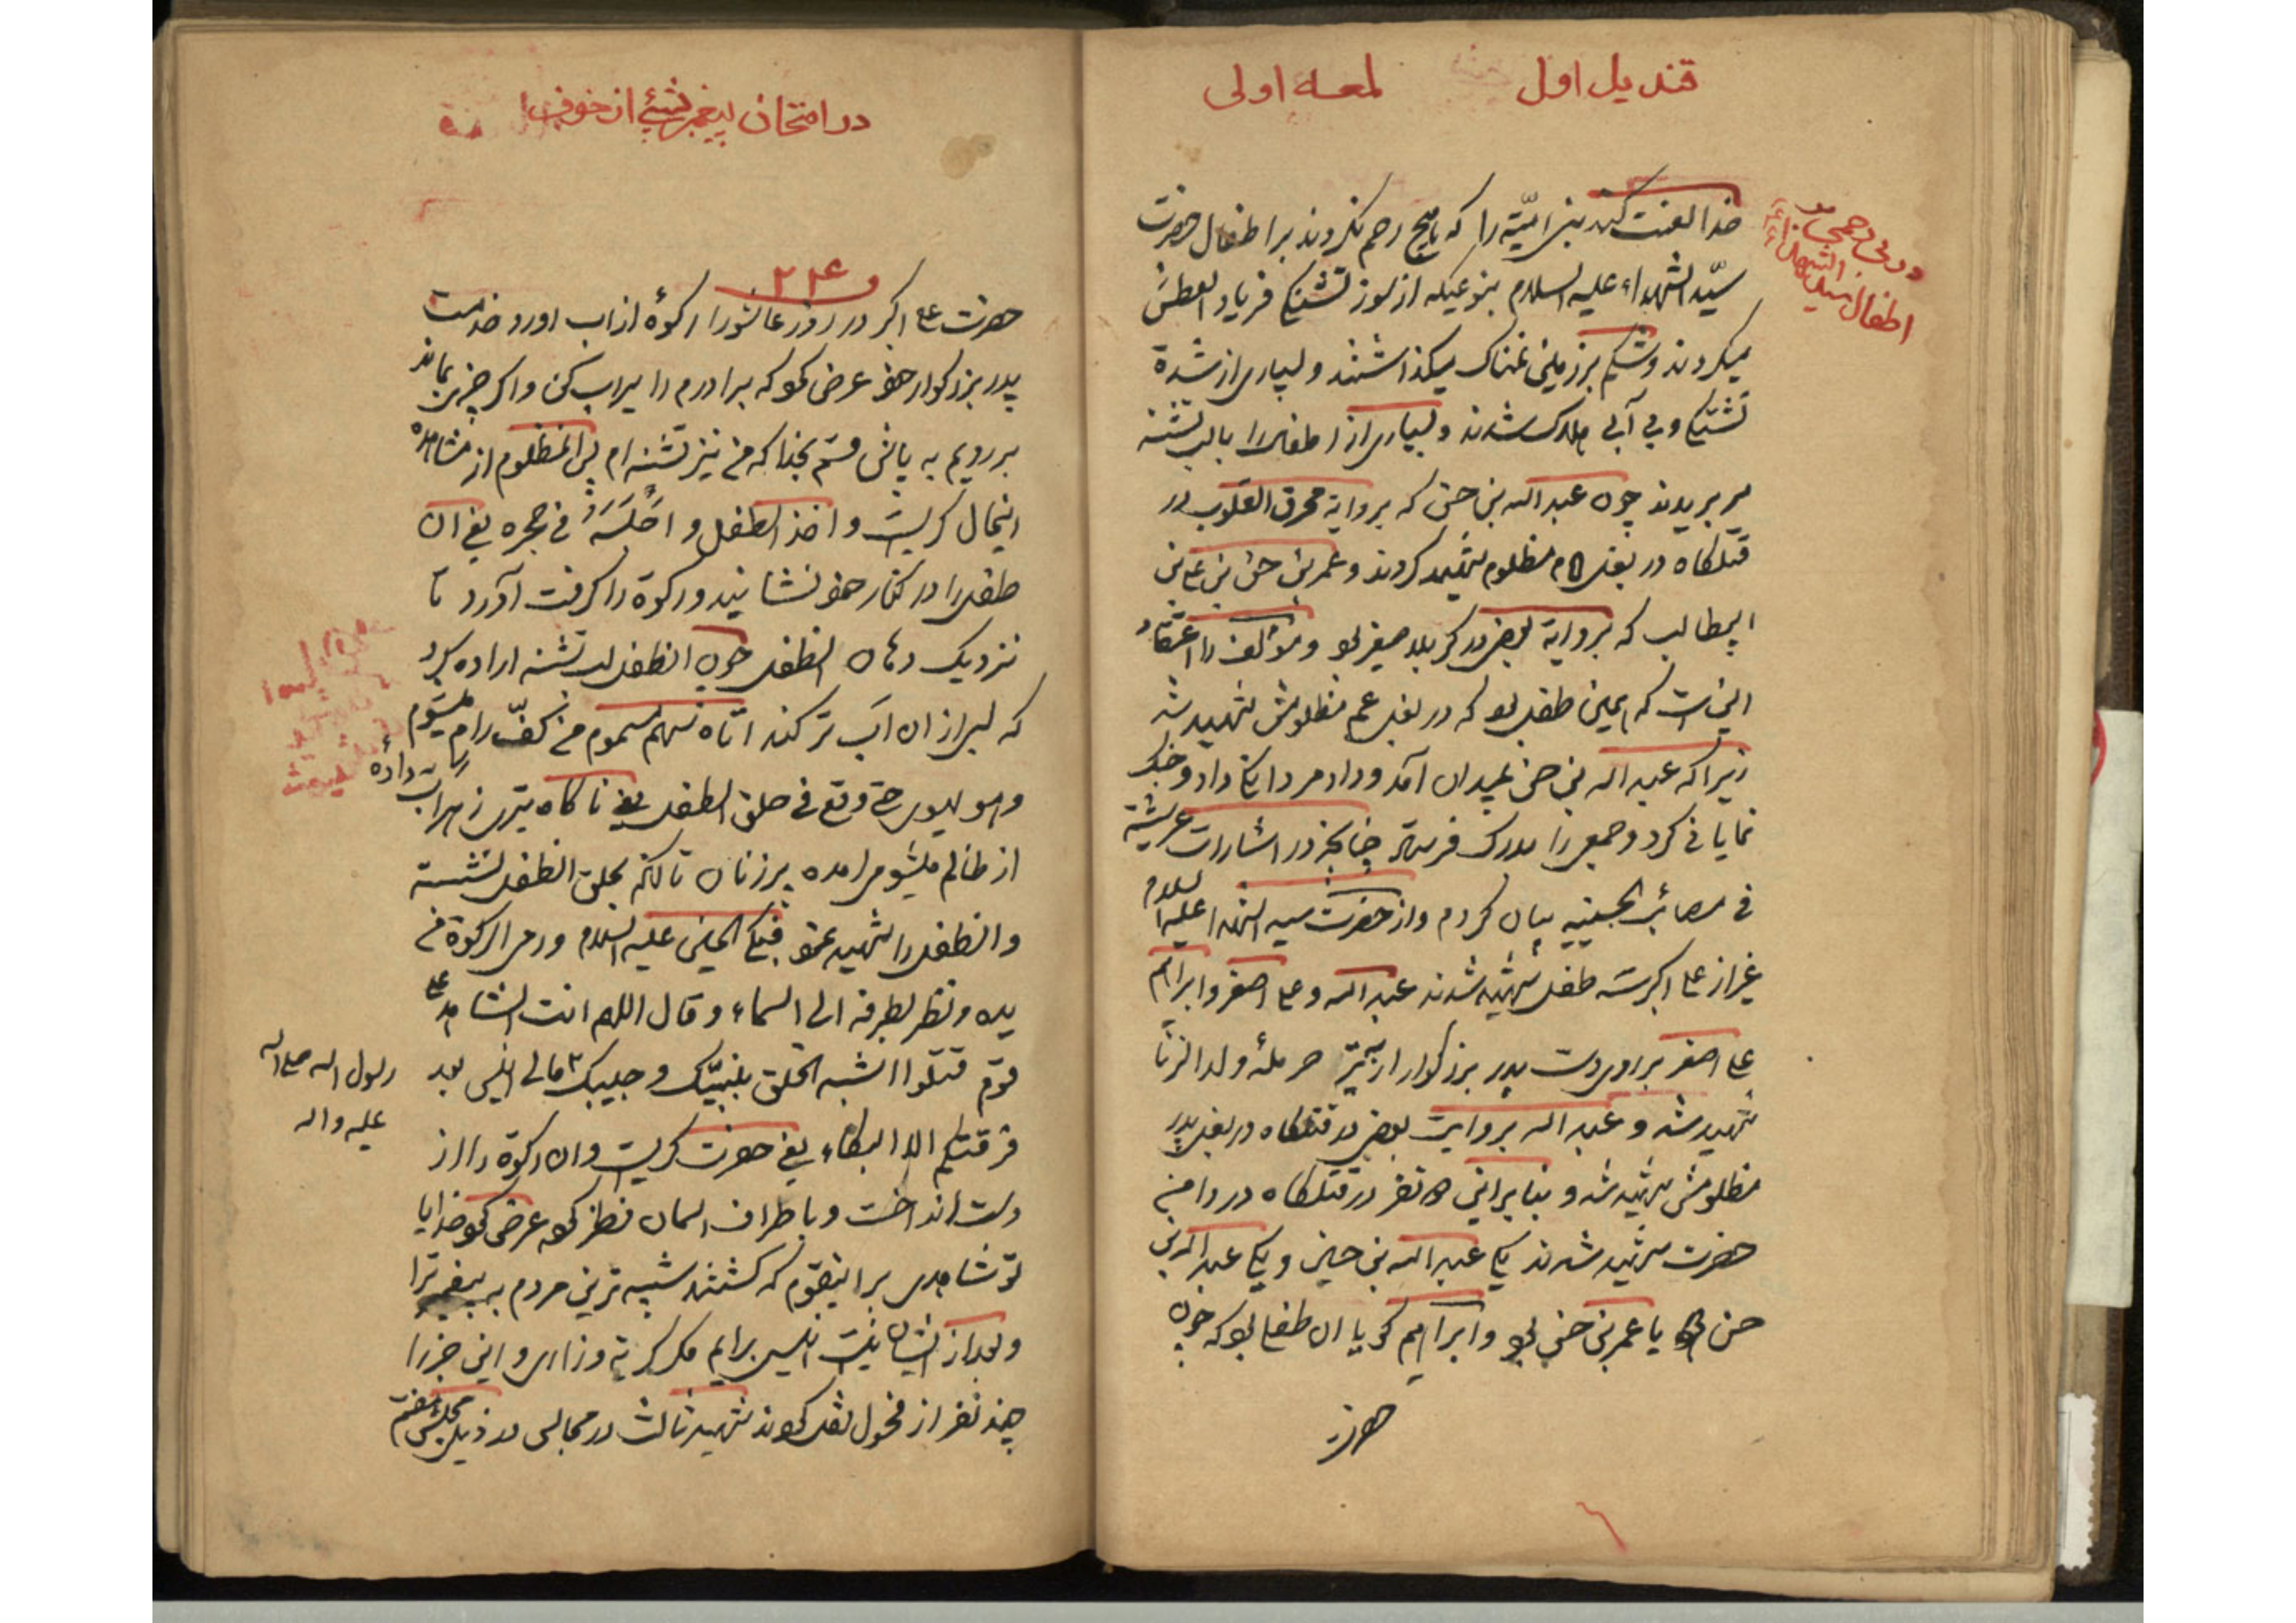 قندیل اول لمعه اولی
در بی رحمی
اطفال سید الشهداء
خدا لعنت کند بنی امیّه را که هیچ رحم نکردند بر اطفال حضرت
سیّد الشهداء علیه السلام بنوعیکه از سوز تشنگی فریاد العطش
میکردند و شکم بر زمین نمناک میکذاشتند و بسیاری از شدة
تشنگی و بی آبی هلاک شدند و بسیاری از اطفال را با لب تشنه
سر بریدند چون عبد الله بن حسن که بروایة محرق القلوب در
قتلکاه در بغل امام مظلوم شهید کردند و عمر بن حسن بن علی بن
ابیطالب که بروایة بعضی در کربلا صغیر بود و مؤلف را اعتقاد
اینست که همین طفل بود که در بغل عم مظلومش شهید شد
زیرا که عبد الله بن حسن بمیدان آمد و داد مردانکی داد و جنک
نمایانی کرد و جمعی را بدرک فرستاد چنانچه در اشارات عرشیة
فی مصائب الحسینیه بیان کردم و از حضرت سید الشهدا علیه السلام
غیر از علی اکبر سه طفل شهید شدند عبد الله و علی اصغر و ابراهیم
علی اصغر بر روی دست پدر بزرکوار از تیر حرملهٔ ولد الزنا
شهید شد و عبد الله بروایت بعضی در قتلکاه در بغل پدر
مظلومش شهید شد و بنابراین دو نفر در قتلکاه در دامن
حضرت شهید شدند یکی عبد الله بن حسین و یکی عبد الله بن
حسن یا عمر بن حسن بود و ابراهیم کویا ان طفلی بود که چون
حضرت
در امتحان پیغمبر بشیئ از خوف
۲۲۴
حضرت علی اکبر در روز عاشورا رکوهٔ از اب اورد خدمت
پدر بزرکوار خود عرض کرد که برادرم را سیراب کن و اکر چیزی بماند
بر رویم به پاش قسم بخدا که من نیز تشنه ام پس المظلوم از مشاهده
اینحال کریست و اخذ الطفل و اجلسه فی حجره یعنی ان
طفل را در کنار خود نشانید و رکوة را کرفت آورد تا
نزدیک دهان الطفل چون انطفل لب تشنه اراده کرد
که لب از ان اب تر کند اتاه سهم مسموم من کفّ رام میشوم
و هو یهوی حتی وقع فی حلق الطفل یعنی ناکاه تیری زهراب داده
از ظالم میشومی امده پرزنان تا انکه بحلق انطفل نشست
و انطفل را شهید نمود فبکی الحسین علیه السلام و رمی الرکوة من
یده و نظر بطرفه الی السماء و قال اللهم انت الشاهد علی
قوم قتلوا اشبه الخلق بنبیّک و حبیبک ما لی انیس بعد
رسول الله صلی الله
علیه و اله
فرقتکم الا البکاء یعنی حضرت کریست و ان رکوة را از
دست انداخت و باطراف اسمان نظر کرد عرض کرد خدایا
تو شاهدی بر اینقوم که کشتند شبیه ترین مردم به پیغمبر ترا
و بعد از ایشان نیست انیس برایم مکر کریه و زاری و این خبر را
چند نفر از فحول نقل کردند شهید ثالث در مجالس در ذیل مجلس هفتم